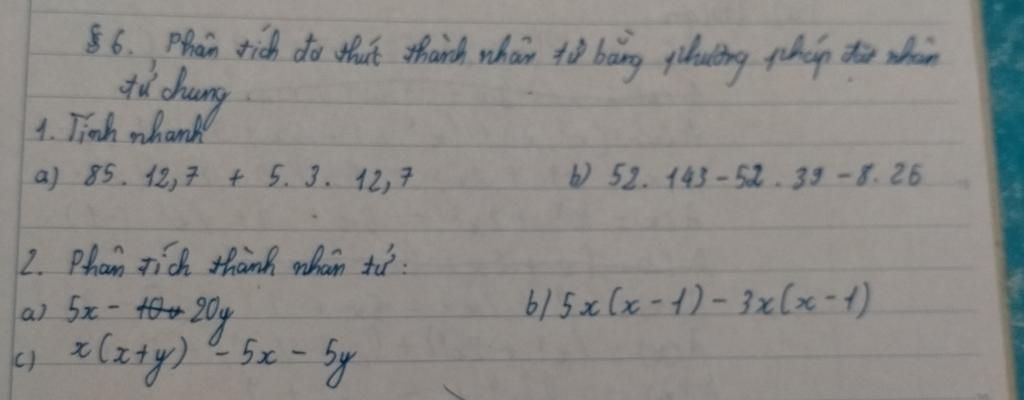 § 6. Phân tích đa thức thành nhân tử bằng phương pháp đặt nhân
tử chung
1. Tính nhanh
a) 85. 12,7 + 5. 3. 12,7 b) 52. 143 - 52. 39 - 8. 26
2. Phân tích thành nhân tử:
a) 5x - 20y b) 5x(x - 1) - 3x(x - 1)
c) x(x+y) - 5x - 5y